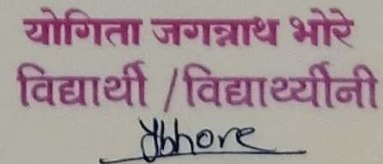 योगिता जगन्नाथ भोरे
विद्यार्थी /विद्यार्थ्यीनी
Ybhore